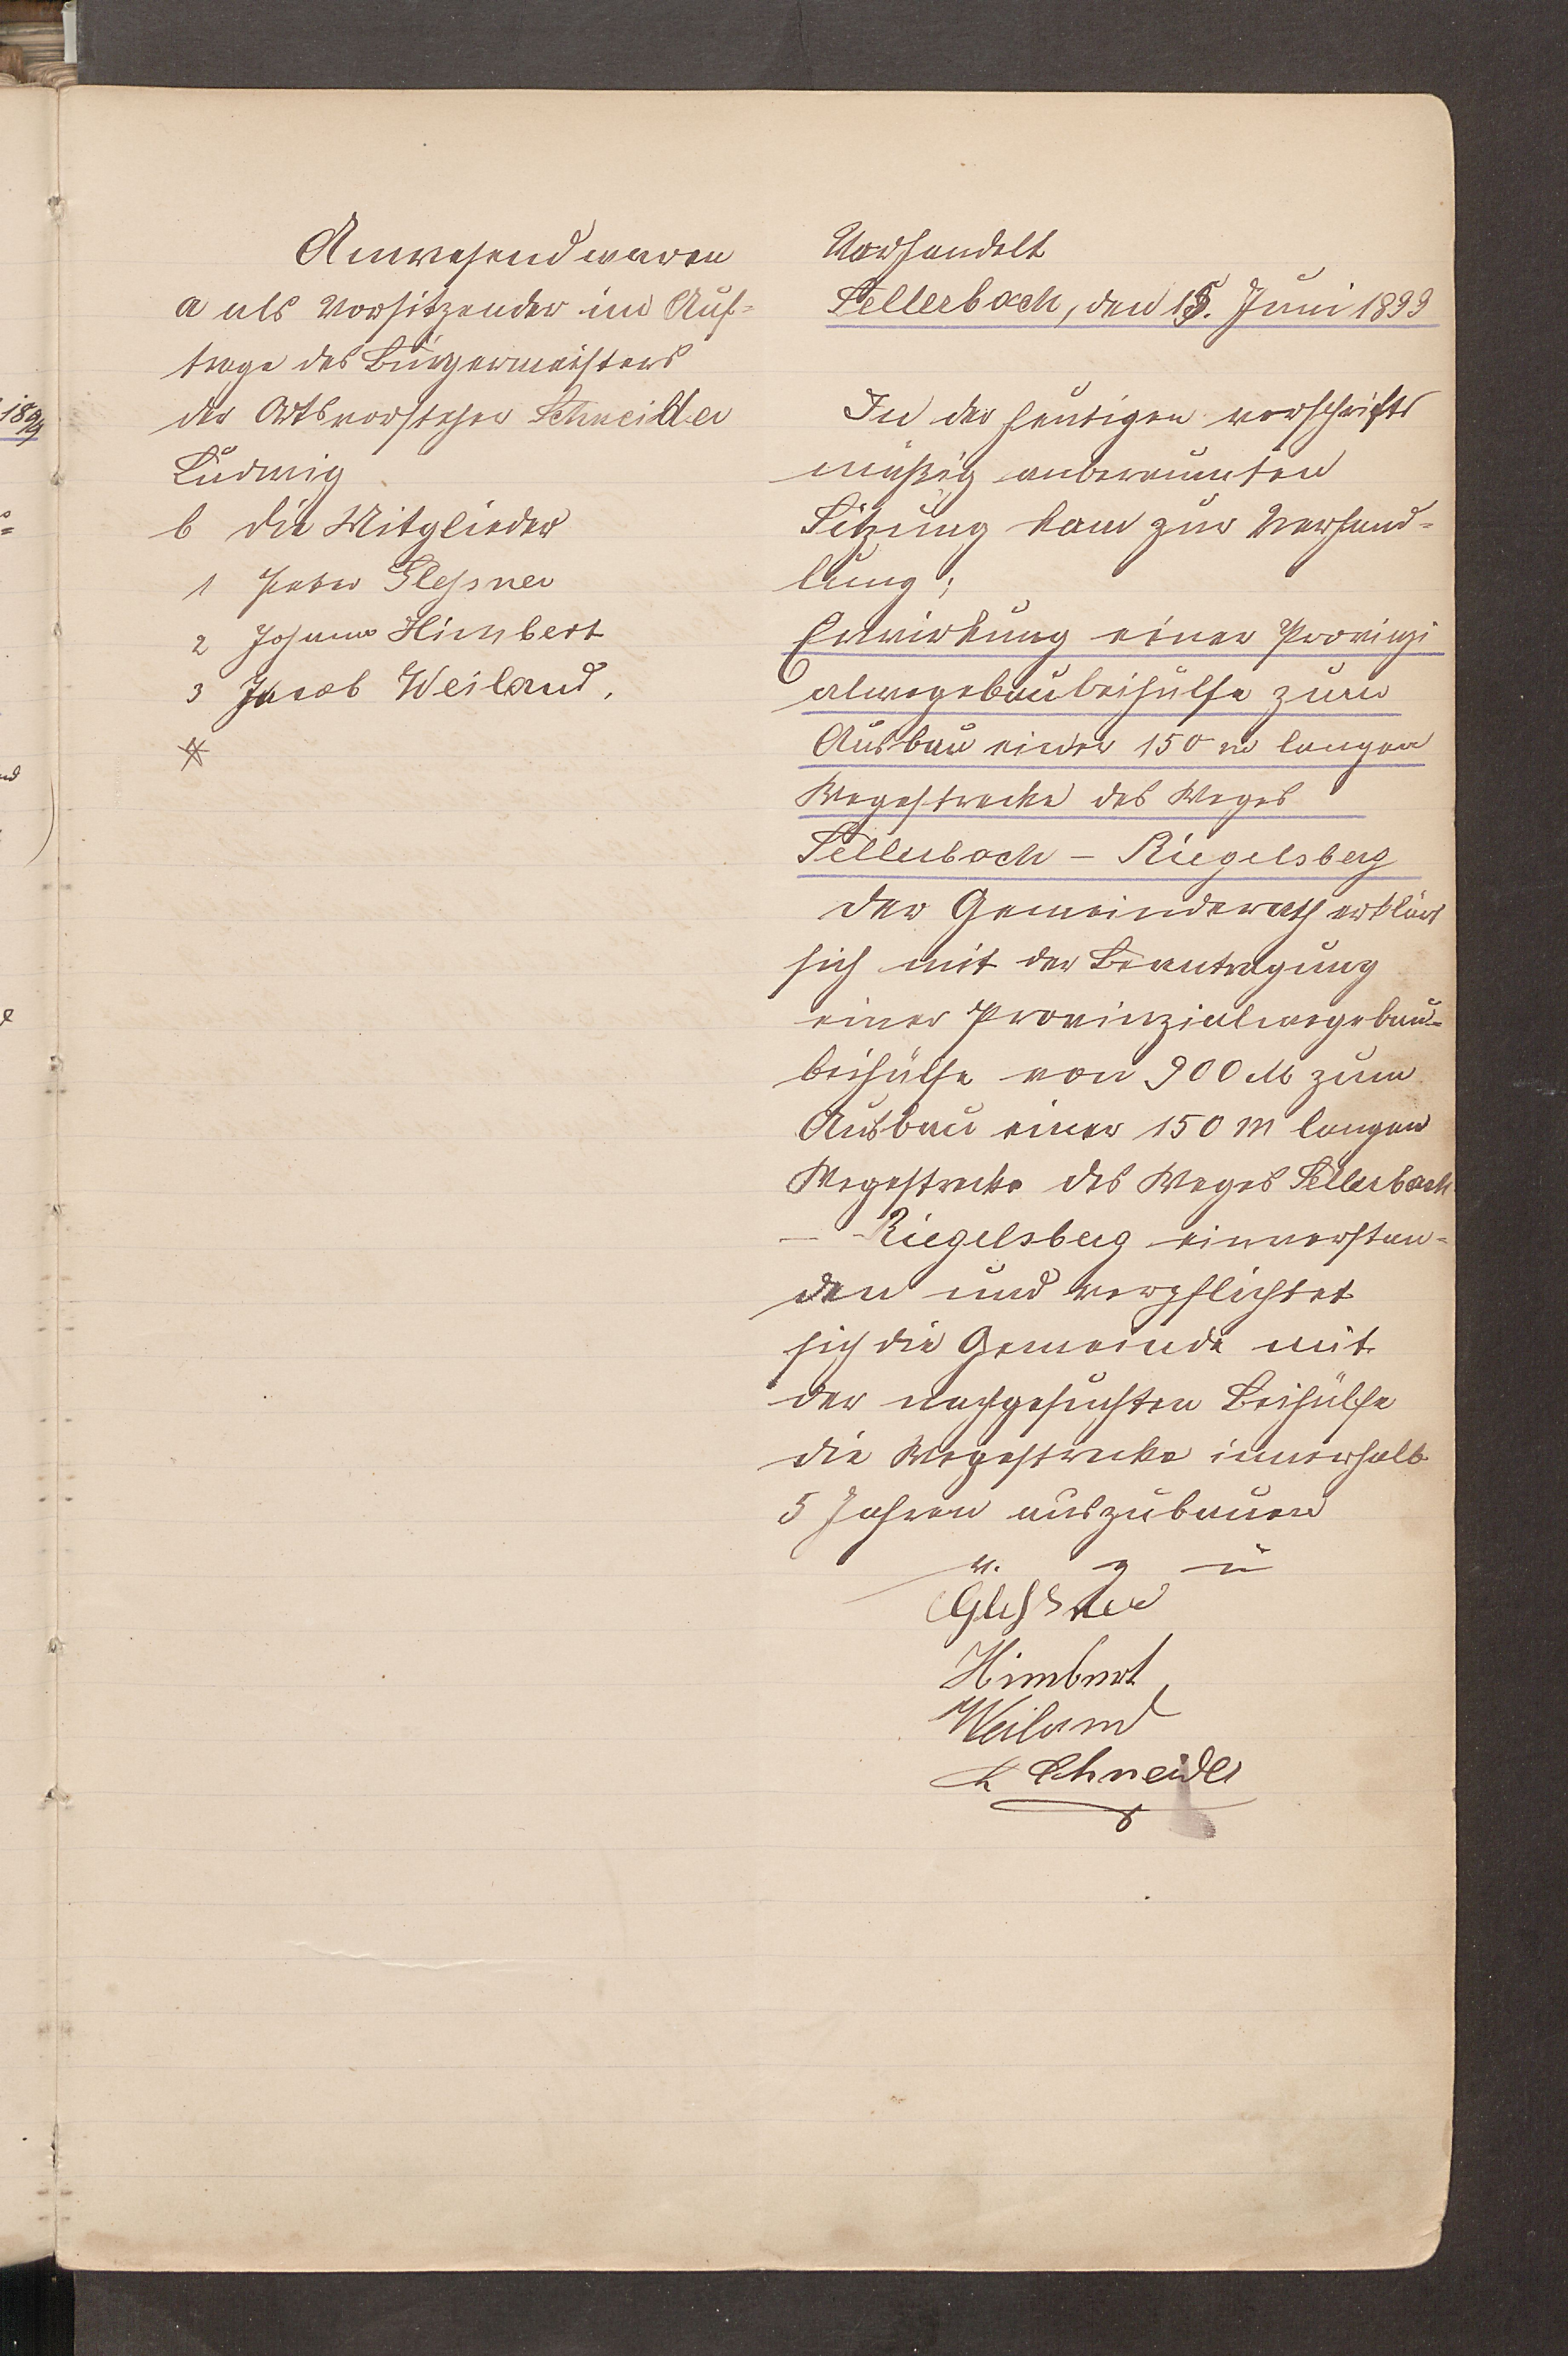 Anwesend waren
a als Vorsitzender im Auf-
trage des Bürgermeisters
der Ortsvorsteher Schneider
Ludwig
b die Mitglieder
1 Peter Glessner
2 Johann Himbert
3 Jacob Weiland.
Verhandelt
Sellerbach, den 15. Juni 1899
In der heutigen vorschrifts
mäßig anberaumten
Sitzung kam zur Verhand-
lung;
Erwirkung einer Provinzi
alwegebaubeihülfe zum
Ausbau einer 150 m langen
Wegestrecke des Weges
Sellerbach - Riegelsberg
Der Gemeinderath erklärt
sich mit der Beantragung
einer Provinzialwegebau-
beihülfe von 900 M zum
Ausbau einer 150 m langen
Wegestrecke des Weges Sellerbach
- Riegelsberg einverstan-
den und verpflichtet
sich die Gemeinde mit
der nachgesuchten Beihülfe
die Wegestrecke innerhalb
5 Jahren auszubauen
v. g u
Glessner
Himbert
Weiland
L Schneider